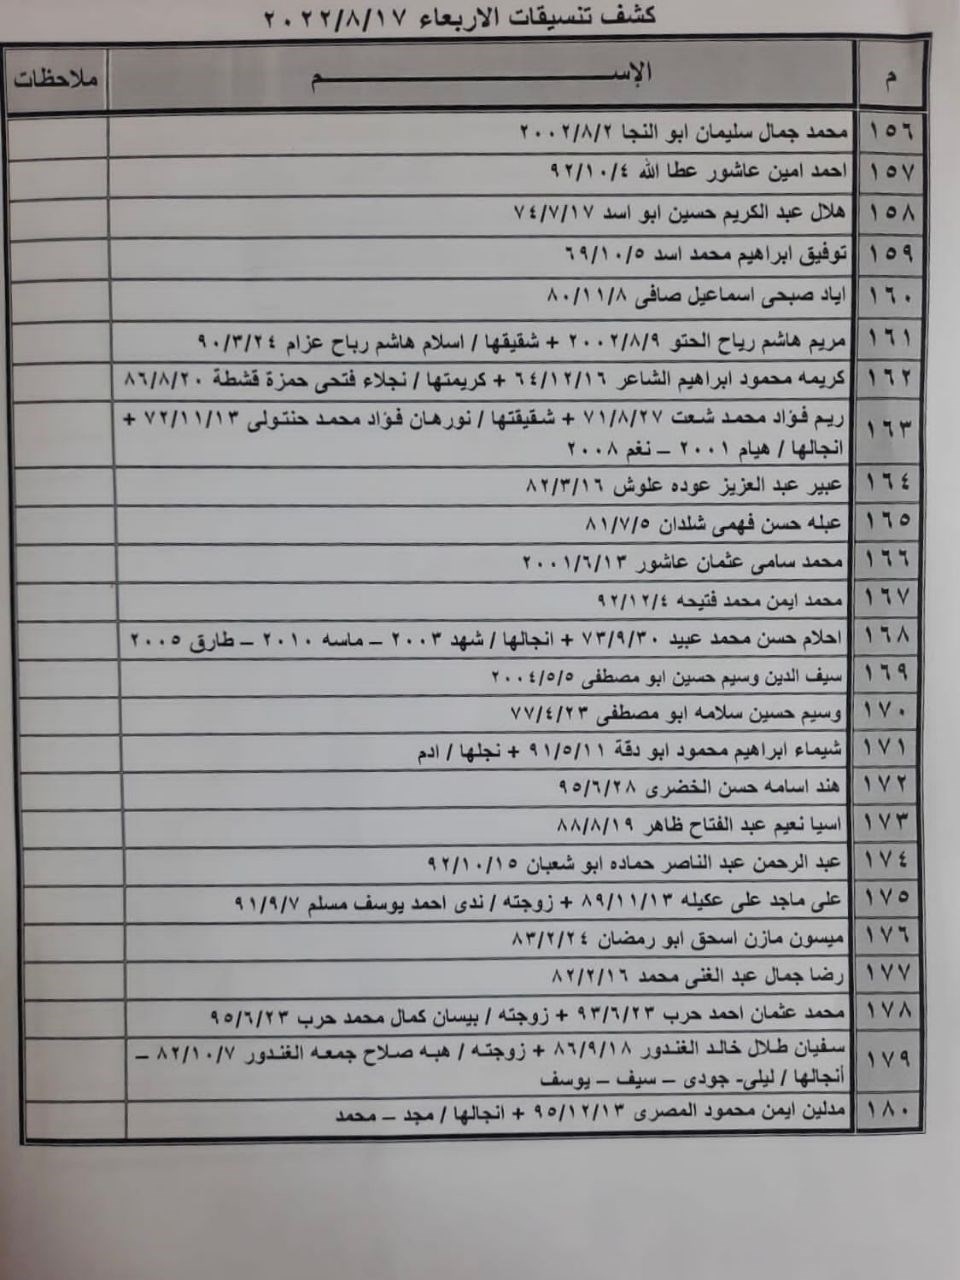 كشف تنسيقات الاربعاء ٢٠٢٢/٨/١٧
م الإســـــــــم ملاحظات
١٥٦ محمد جمال سليمان ابو النجا ٢٠٠٢/٨/٢
١٥٧ احمد امين عاشور عطا الله ٩٢/١٠/٤
١٥٨ هلال عبد الكريم حسين ابو اسد ٧٤/٧/١٧
١٥٩ توفيق ابراهيم محمد اسد ٦٩/١٠/٥
١٦٠ اياد صبحى اسماعيل صافى ٨٠/١١/٨
١٦١ مريم هاشم رياح الحتو ٢٠٠٢/٨/٩ + شقيقها / اسلام هاشم رباح عزام ٩٠/٣/٢٤
١٦٢ كريمه محمود ابراهيم الشاعر ٦٤/١٢/١٦ + كريمتها / نجلاء فتحى حمزة قشطة ٨٦/٨/٢٠
١٦٣ ريم فؤاد محمد شعت ٧١/٨/٢٧ + شقيقتها / نورهان فؤاد محمد حنتولى ٧٢/١١/١٣ +
انجالها / هيام ٢٠٠١ – نغم ٢٠٠٨
١٦٤ عبير عبد العزيز عوده علوش ٨٢/٣/١٦
١٦٥ عبله حسن فهمى شلدان ٨١/٧/٥
١٦٦ محمد سامى عثمان عاشور ٢٠٠١/٦/١٣
١٦٧ محمد ايمن محمد فتيحه ٩٢/١٢/٤
١٦٨ احلام حسن محمد عبيد ٧٣/٩/٣٠ + انجالها / شهد ٢٠٠٣ – ماسه ٢٠١٠ – طارق ٢٠٠٥
١٦٩ سيف الدين وسيم حسين ابو مصطفى ٢٠٠٤/٥/٥
١٧٠ وسيم حسين سلامه ابو مصطفى ٧٧/٤/٢٣
١٧١ شيماء ابراهيم محمود ابو دقة ٩١/٥/١١ + نجلها / ادم
١٧٢ هند اسامه حسن الخضرى ٩٥/٦/٢٨
١٧٣ اسيا نعيم عبد الفتاح ظاهر ٨٨/٨/١٩
١٧٤ عبد الرحمن عبد الناصر حماده ابو شعبان ٩٢/١٠/١٥
١٧٥ على ماجد على عكيله ٨٩/١١/١٣ + زوجته / ندى احمد يوسف مسلم ٩١/٩/٧
١٧٦ ميسون مازن اسحق ابو رمضان ٨٣/٢/٢٤
١٧٧ رضا جمال عبد الغنى محمد ٨٢/٢/١٦
١٧٨ محمد عثمان احمد حرب ٩٣/٦/٢٣ + زوجته / بيسان كمال محمد حرب ٩٥/٦/٢٣
١٧٩ سفيان طلال خالد الغندور ٨٦/٩/١٨ + زوجته / هبه صلاح جمعه الغندور ٨٢/١٠/٧ –
أنجالها / ليلى- جودى – سيف – يوسف
١٨٠ مدلين ايمن محمود المصرى ٩٥/١٢/١٣ + انجالها / مجد – محمد